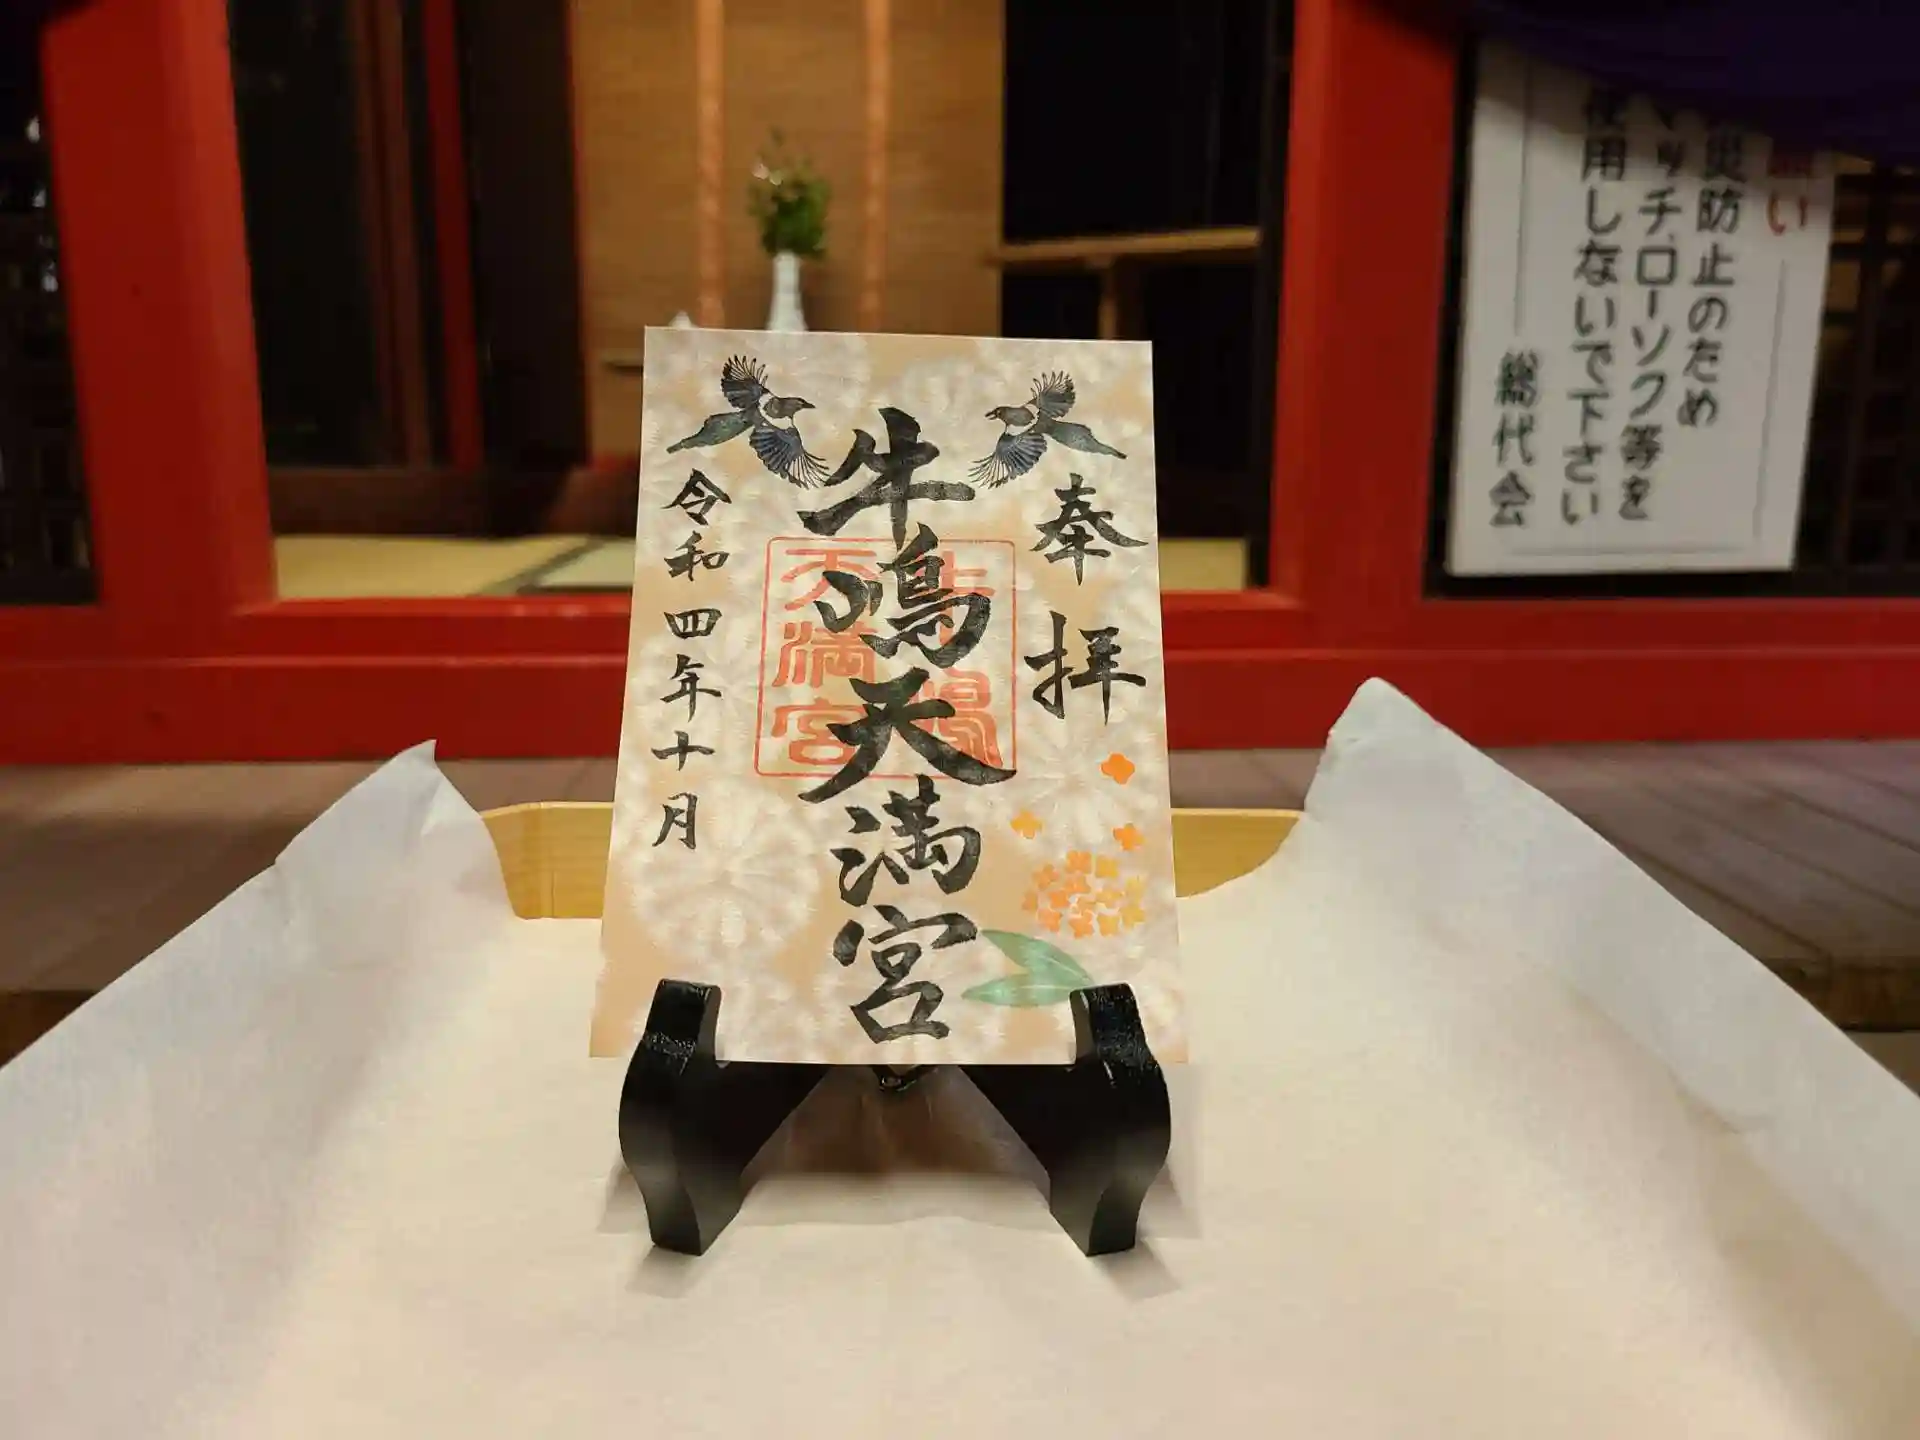 奉拝
牛嶋天満宮
令和四年十月
牛嶋
天満宮
願い
災防止のため
マッチ、ローソク等を
使用しないで下さい
総代会